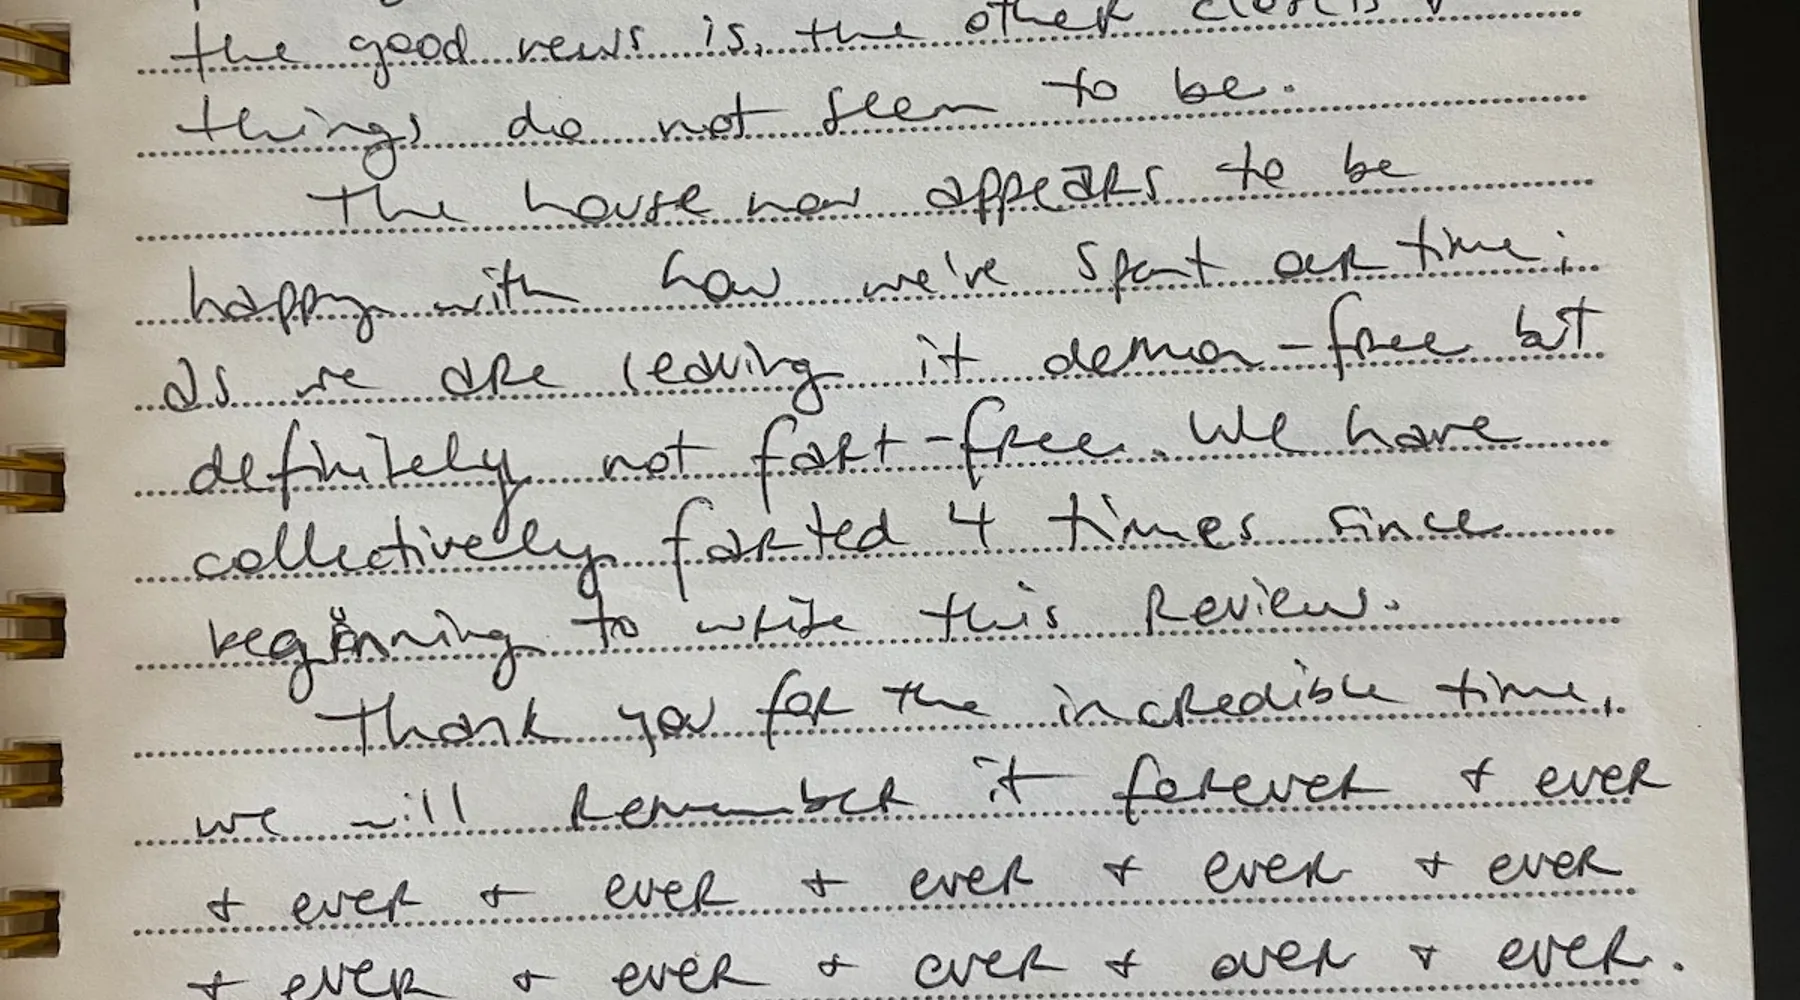 the good news is, the other closets &
things do not seem to be.
The house now appears to be
happy with how we've spent our time;
as we are leaving it demon-free but
definitely not fart-free. We have
collectively farted 4 times since
beginning to write this review.
Thank you for the incredible time,
we will remember it forever & ever
& ever & ever & ever & ever & ever
& ever & ever & ever & over & ever.